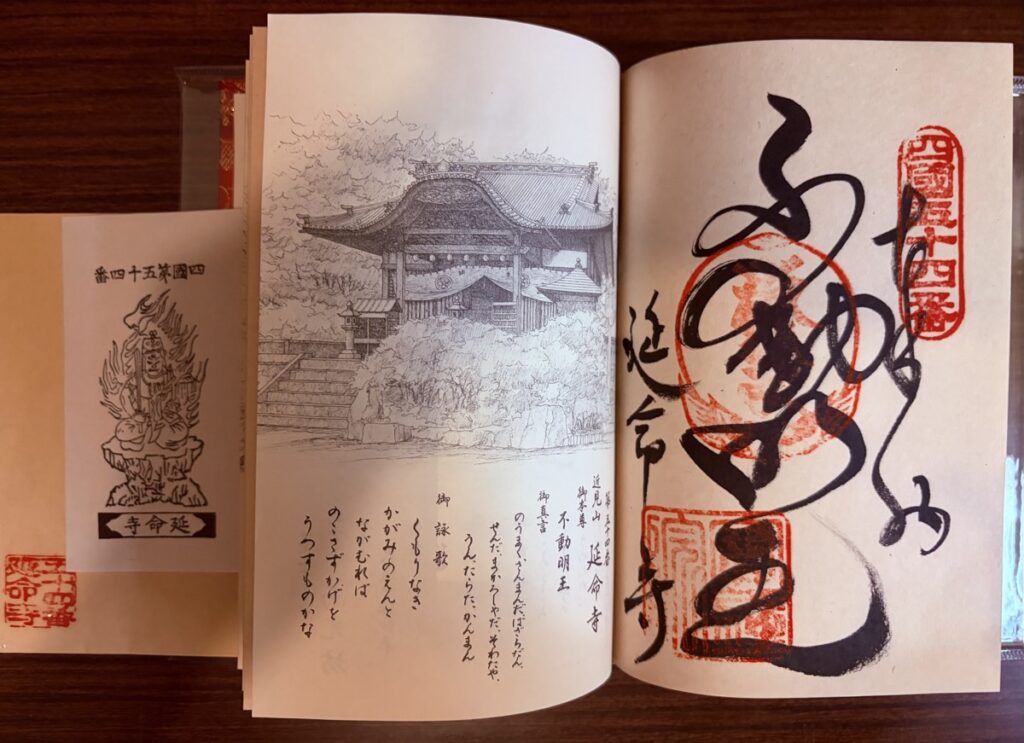 四國第五十四番
延命寺
第五十四番
近見山 延命寺
御本尊
不動明王
御真言
のうまく、さんまんだ、ばざらだん、
せんだ、まかろしゃだ、そわたや、
うん、たらた、かんまん
御詠歌
くもりなき
かがみのえんと
ながむれば
のこさずかげを
うつすものかな
四國五十四番
不動明王
延命寺